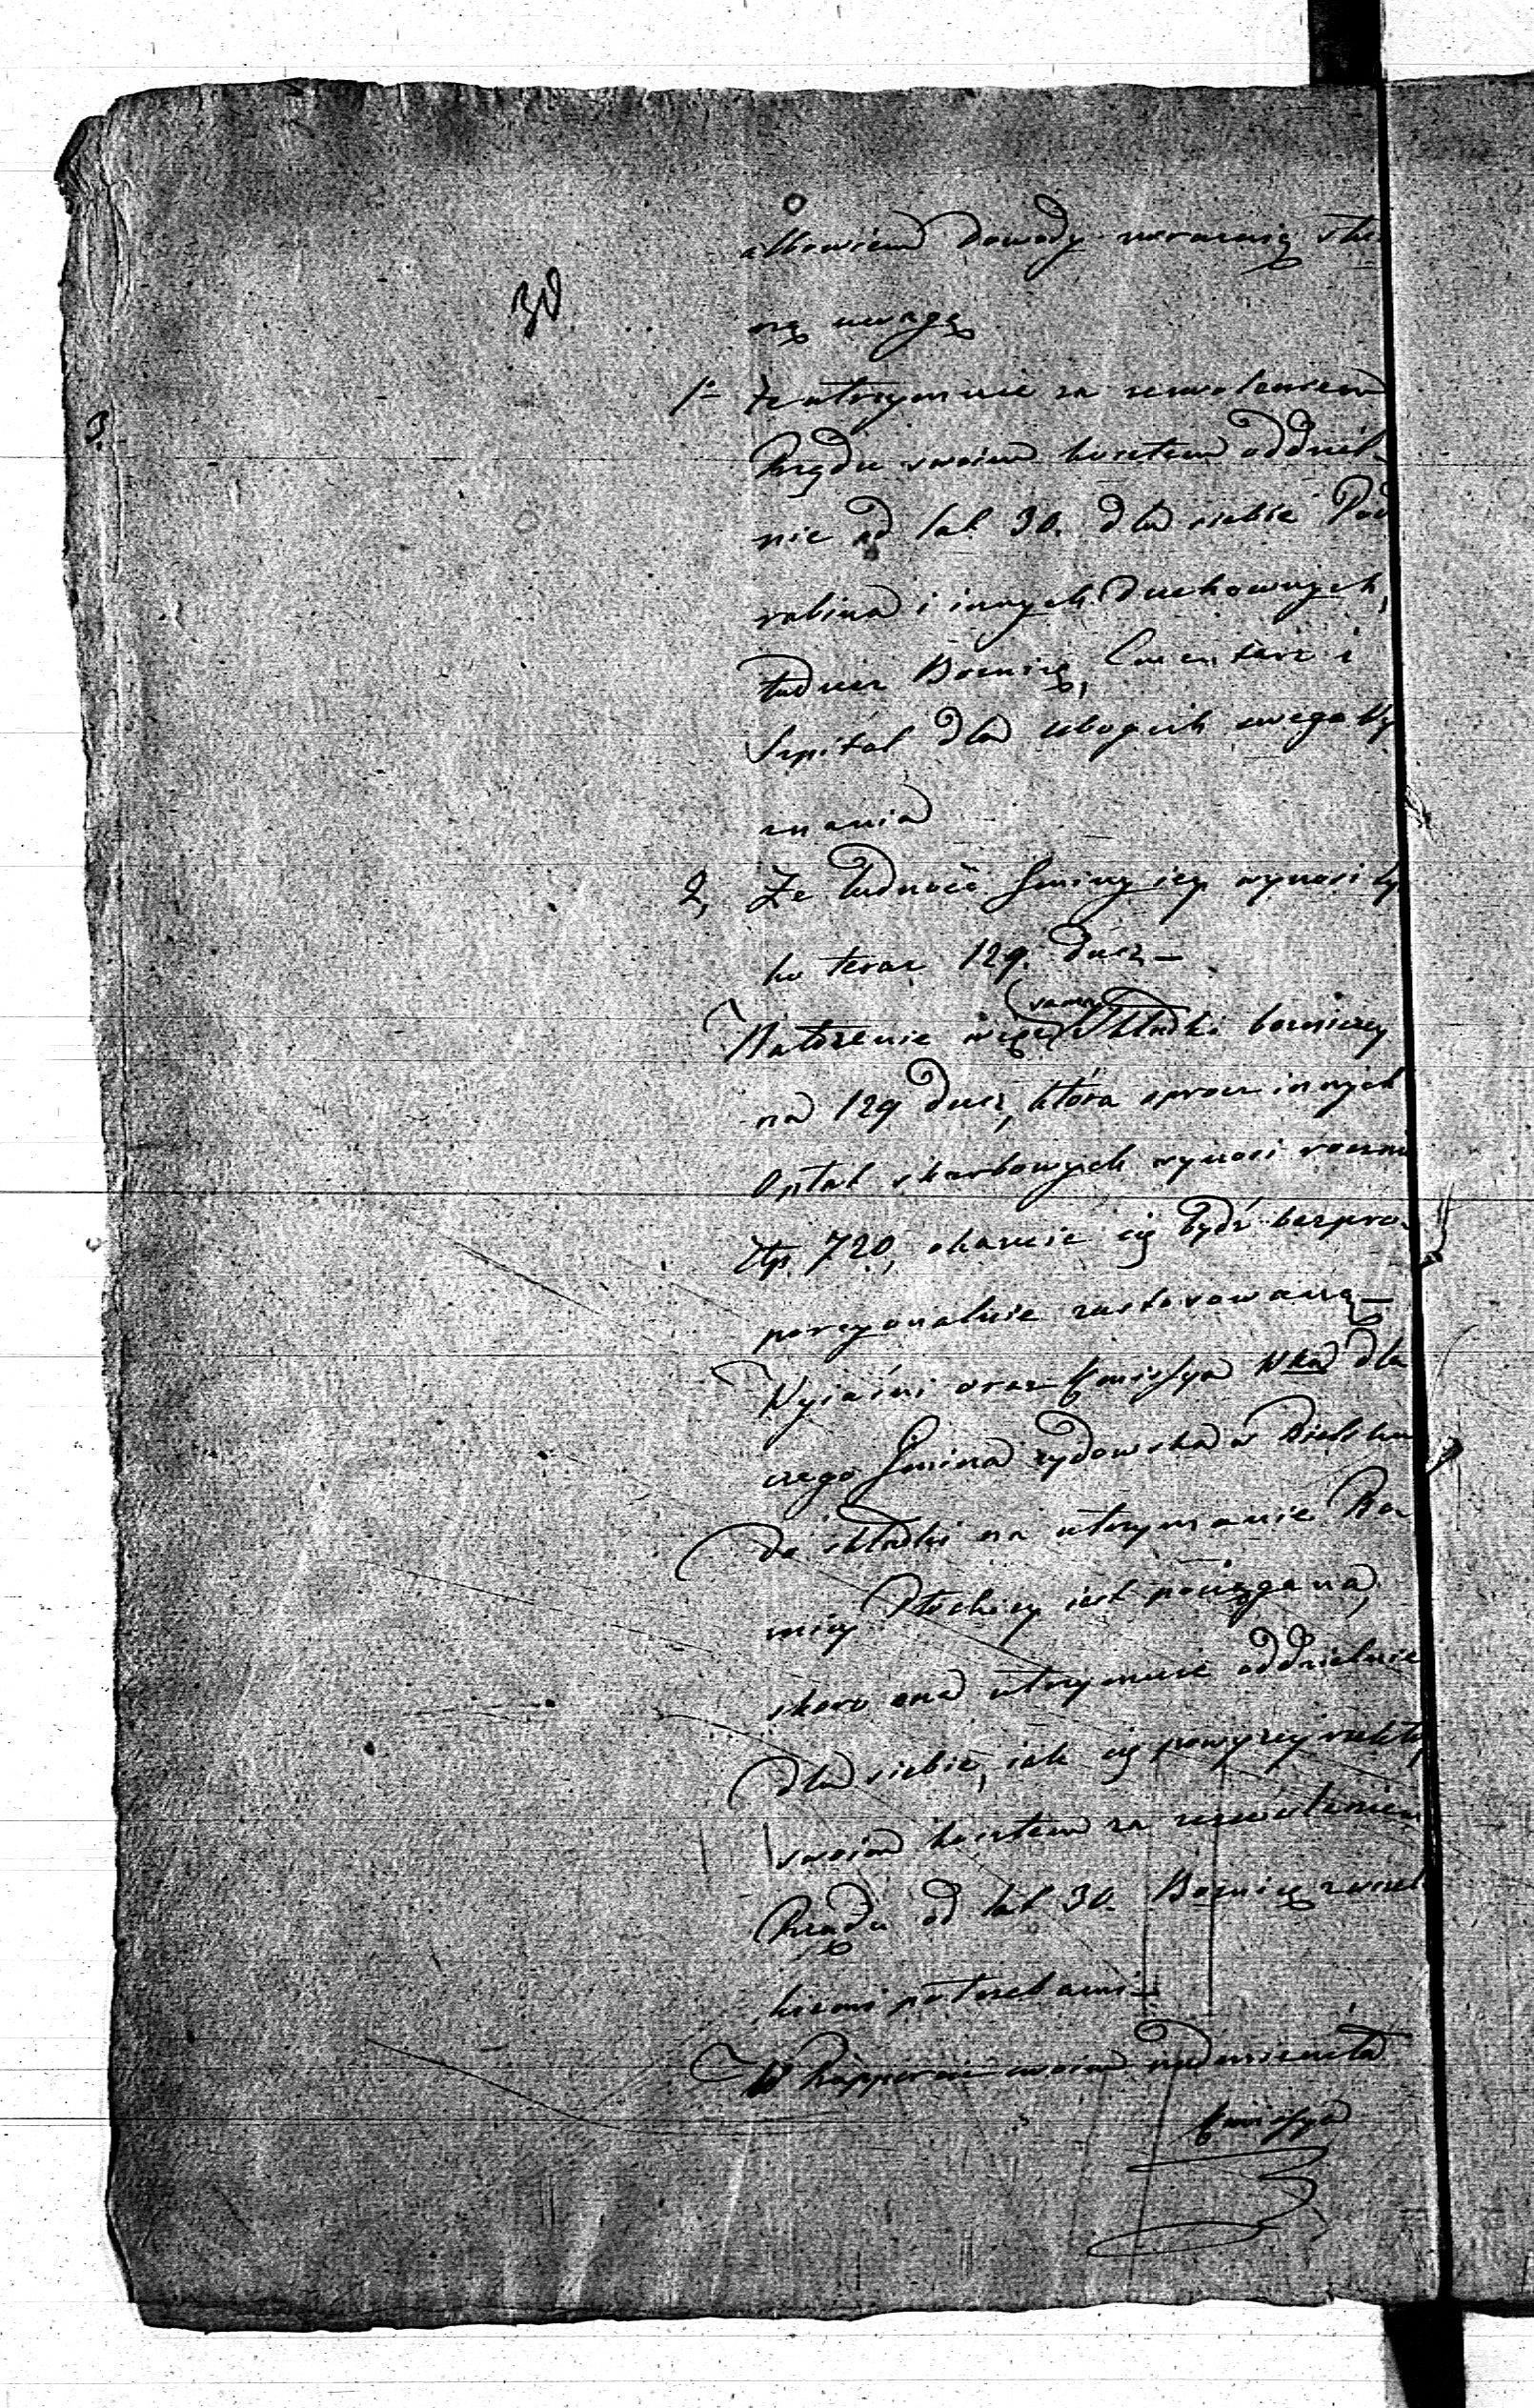 albowiem dowody wrazaią słu-
ną uwagę
1° że utrzymuie za zezwoleniem
Rządu swoim kosztem oddziel-
nie od lat 30. dla siebie Pod
rabina i innych duchownych,
tudzież Boźnicę, Cmentarz i
Szpital dla ubogich swego Wy
znania
2, Że ludność Gminy iey wynosi tyl
ko teraz 129. dusz —
Nałożenie więc samey Składki bozniczey
na 129 dusz, która oprocz innych
Opłat skarbowych wynosi roczni
Złp. 720, okazuie się bydź bezpro-
porcyonalnie zastosowaną —
Wyiaśni oraz Kommissya Wka dla
czego Gmina żydowska w Bielsku
do składki na utrzymanie Boz
nicy Płockiey iest pociągana,
skoro ona utrzymuie oddzielnie
dla siebie, iak się powyżey rzekło,
swoim kosztem za zezwoleniem
Rządu od lat 30. Boznicę z wszel
kiemi potrzebami —
W Rapporcie swoim nadmieniła
Kommissya